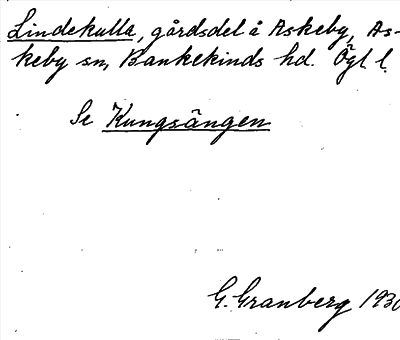 Lindekulla, gårdsdel å Askeby, As-
keby sn, Bankekinds hd. Ögl. l.
Se Kungsängen
G. Granberg 1930